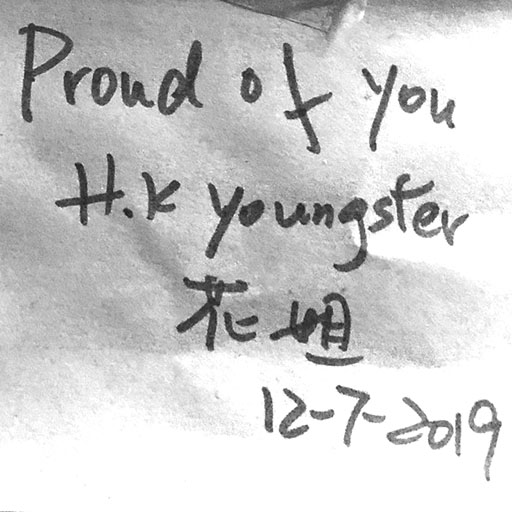 Proud of you
H.K youngster
花姐
12-7-2019